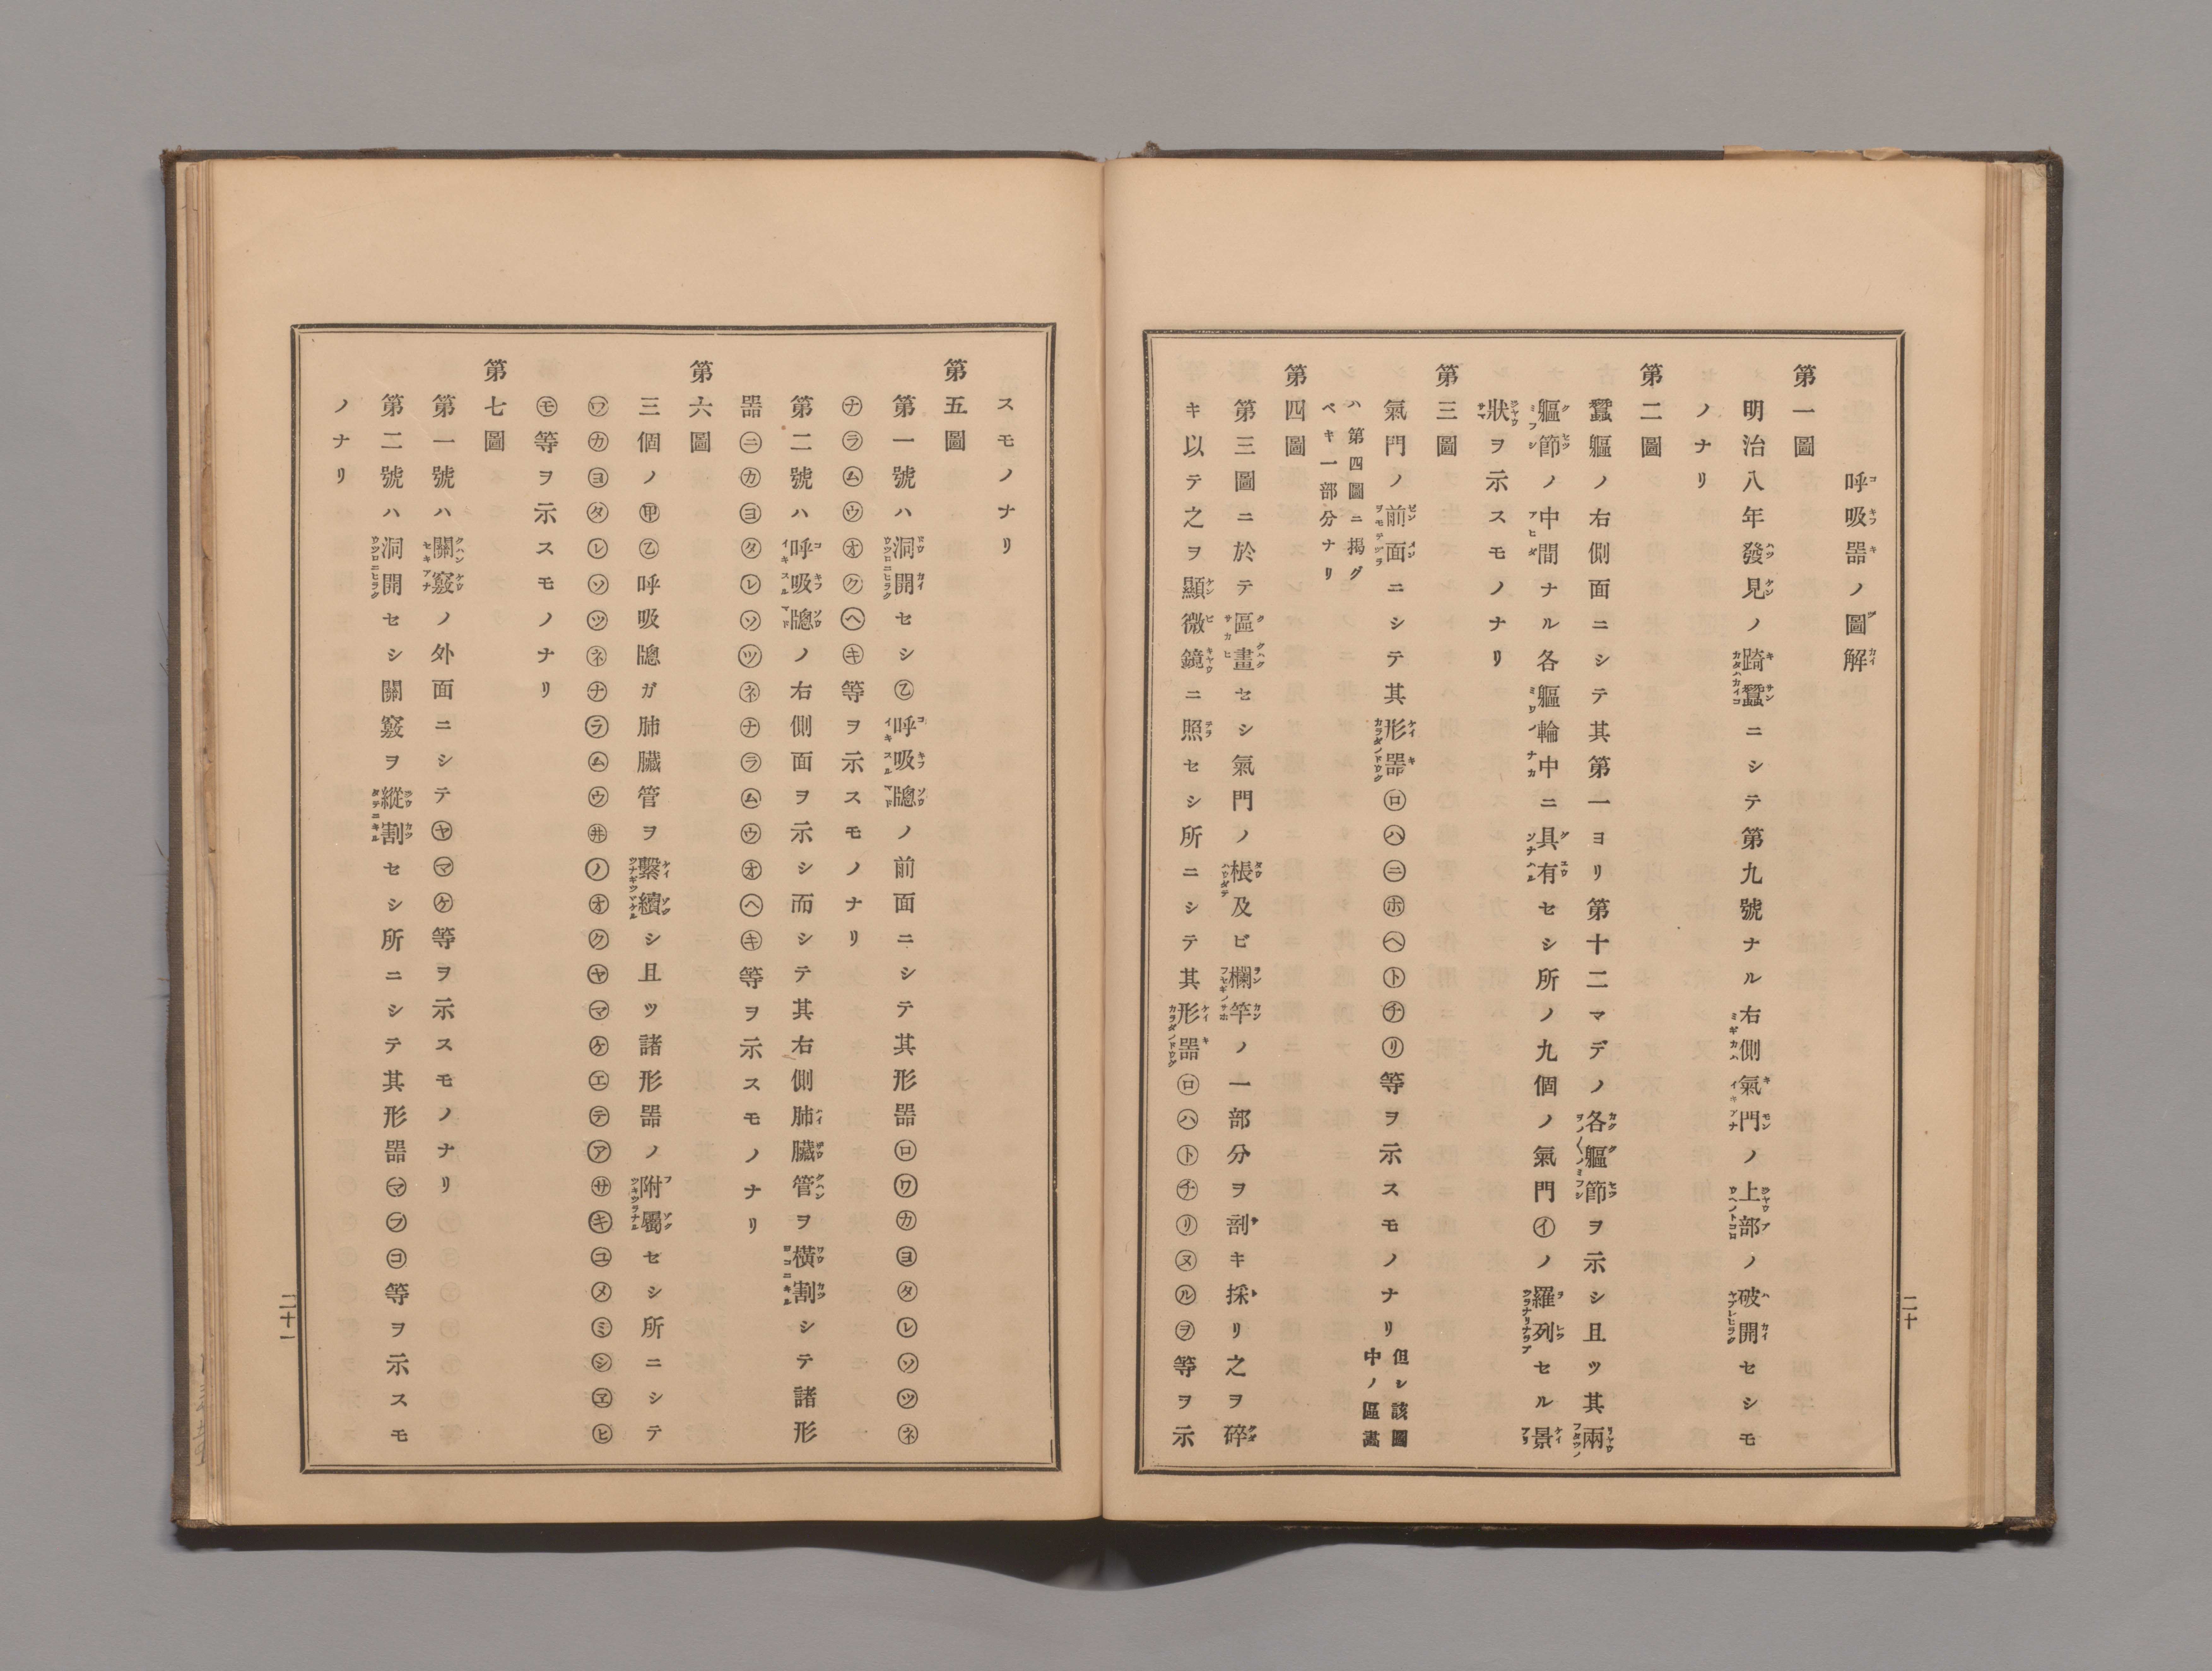 呼吸器ノ圖解
第一圖
明治八年發見ノ踦蠶ニシテ第九號ナル右側氣門ノ上部ノ破開セシモ
ノナリ
第二圖
蠶軀ノ右側面ニシテ其第一ヨリ第十二マデノ各軀節ヲ示シ且ツ其兩
軀節ノ中間ナル各軀輪中ニ具有セシ所ノ九個ノ氣門㋑ノ羅列セル景
狀ヲ示スモノナリ
第三圖
氣門ノ前面ニシテ其形器㋺㋩㋥㋭㋬㋣㋠㋷等ヲ示スモノナリ但シ該圖
中ノ區畵
ハ第四圖ニ揭グ
ベキ一部分ナリ
第四圖
第三圖ニ於テ區畫セシ氣門ノ棖及ビ欄竿ノ一部分ヲ剖キ採リ之ヲ碎
キ以テ之ヲ顯微鏡ニ照セシ所ニシテ其形器㋺㋩㋣㋠㋷㋦㋸㋾等ヲ示
二十
スモノナリ
第五圖
第一號ハ洞開セシ㊁呼吸牕ノ前面ニシテ其形器㋺㋻㋕㋵㋟㋹㋞㋡㋧
㋤㋶㋰㋒㋔㋗㋬㋖等ヲ示スモノナリ
第二號ハ呼吸牕ノ右側面ヲ示シ而シテ其右側肺臟管ヲ橫割シテ諸形
器㋥㋕㋵㋟㋹㋞㋡㋧㋤㋶㋰㋒㋔㋬㋖等ヲ示スモノナリ
第六圖
三個ノ㊙㊁呼吸牕ガ肺臟管ヲ繫續シ且ツ諸形器ノ附屬セシ所ニシテ
㋻㋕㋵㋟㋹㋞㋡㋧㋤㋶㋰㋒㋼㋨㋔㋗㋳㋮㋘㋓㋢㋐㋚㋖㋴㋱㋯㋛㋽㋪
㋲等ヲ示スモノナリ
第七圖
第一號ハ關竅ノ外面ニシテ㋳㋮㋘等ヲ示スモノナリ
第二號ハ洞開セシ關竅ヲ縱割セシ所ニシテ其形器㋮㋫㋙等ヲ示スモ
ノナリ
二十一